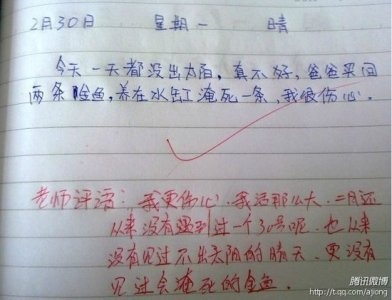 2月30日 星期一 晴
今天一天都没出太阳，真不好，爸爸买回
两条金鱼，养在水缸淹死一条，我很伤心。
老师评语：我更伤心，我活那么大，二月还
从来没有遇到过一个30号呢，也从
没有见过不出太阳的晴天，更没有
见过会淹死的金鱼。
腾讯微博
http://t.qq.com/ajiong